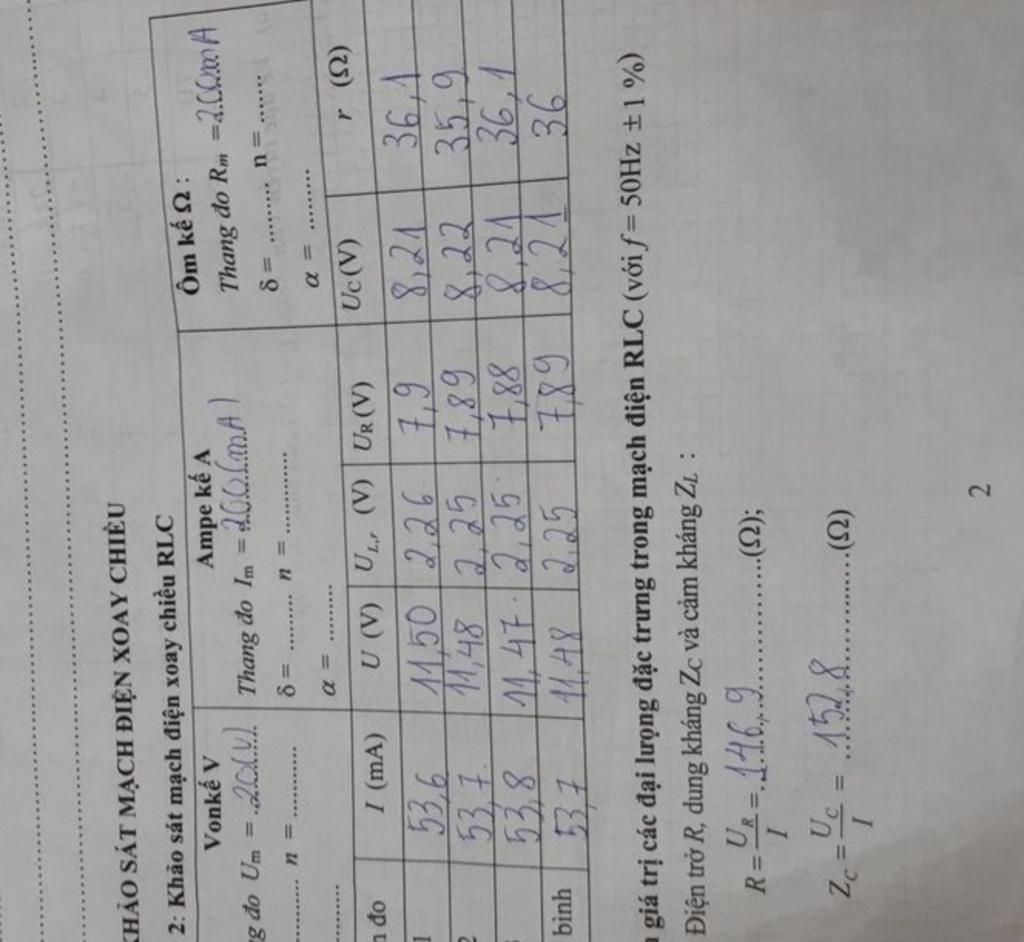 KHẢO SÁT MẠCH ĐIỆN XOAY CHIỀU
2: Khảo sát mạch điện xoay chiều RLC
Vonkế V Ampe kế A Ôm kế Ω :
ng đo Um = 20(V) Thang đo Im = 200(mA) Thang đo Rm = 200mA
........... n = ............ δ = .......... n = ............ δ = .......... n = ........
........... α = .......... α = ..........
n đo I (mA) U (V) UL,r (V) UR(V) UC(V) r (Ω)
1 53,6 11,50 2,26 7,9 8,21 36,1
2 53,7 11,48 2,25 7,89 8,22 35,9
53,8 11,47 2,25 7,88 8,21 36,1
bình 53,7 11,48 2,25 7,89 8,21 36
giá trị các đại lượng đặc trưng trong mạch điện RLC (với f = 50Hz ± 1 %)
Điện trở R, dung kháng ZC và cảm kháng ZL :
R = UR/I = 146,9 (Ω);
ZC = UC/I = 152,8 (Ω)
2